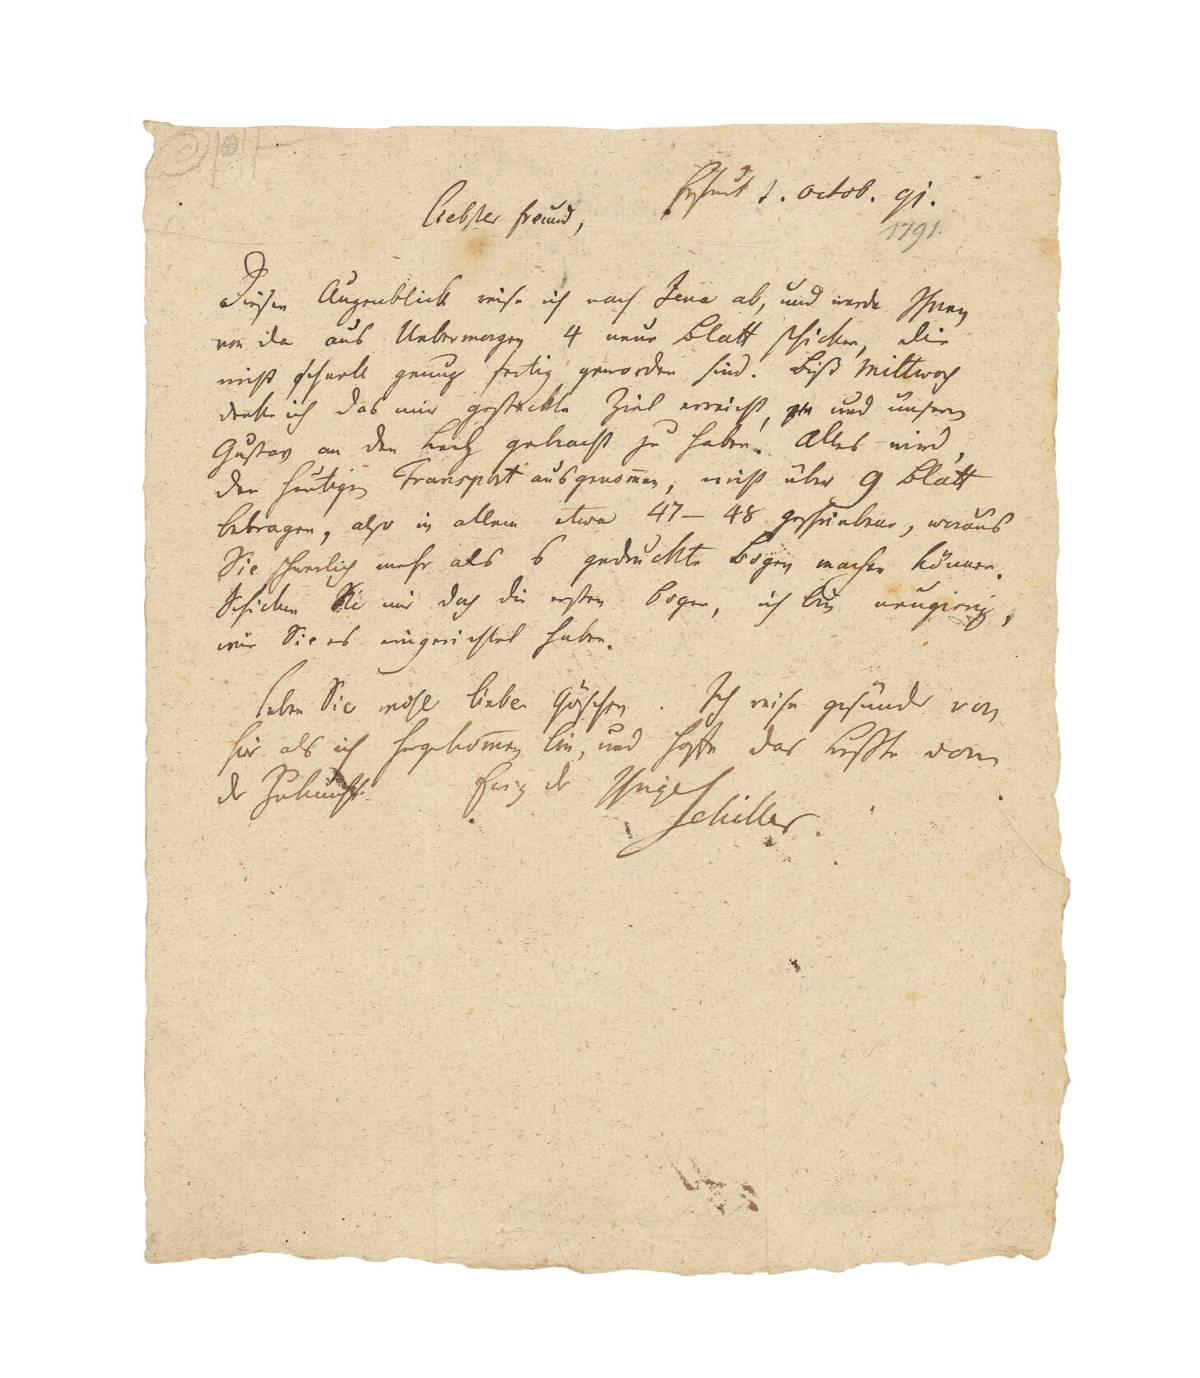 Erfurt 1. octob. 91.
1791.
Liebster Freund,
Diesen Augenblick reise ich nach Jena ab, und werde Ihnen
von da aus Uebermorgen 4 neue Blatt schicken, die
nicht schnell genug fertig geworden sind. Biß Mittwoch
denke ich das mir gesteckte Ziel erreicht, und unsern
Gustav an den Lech gebracht zu haben. Alles wird,
den heutigen Transport ausgenommen, nicht über 9 Blatt
betragen, also in allem etwa 47 – 48 geschriebene, woraus
Sie schwerlich mehr als 6 gedruckte Bogen machen können.
Schicken Sie mir doch die ersten Bogen, ich bin neugierig,
wie Sie es eingerichtet haben.
Leben Sie wohl lieber Göschen. Ich reise gesünder von
hier als ich hergekommen bin, und hoffe das beßte von
der Zukunft. Ewig der Ihrige
Schiller.